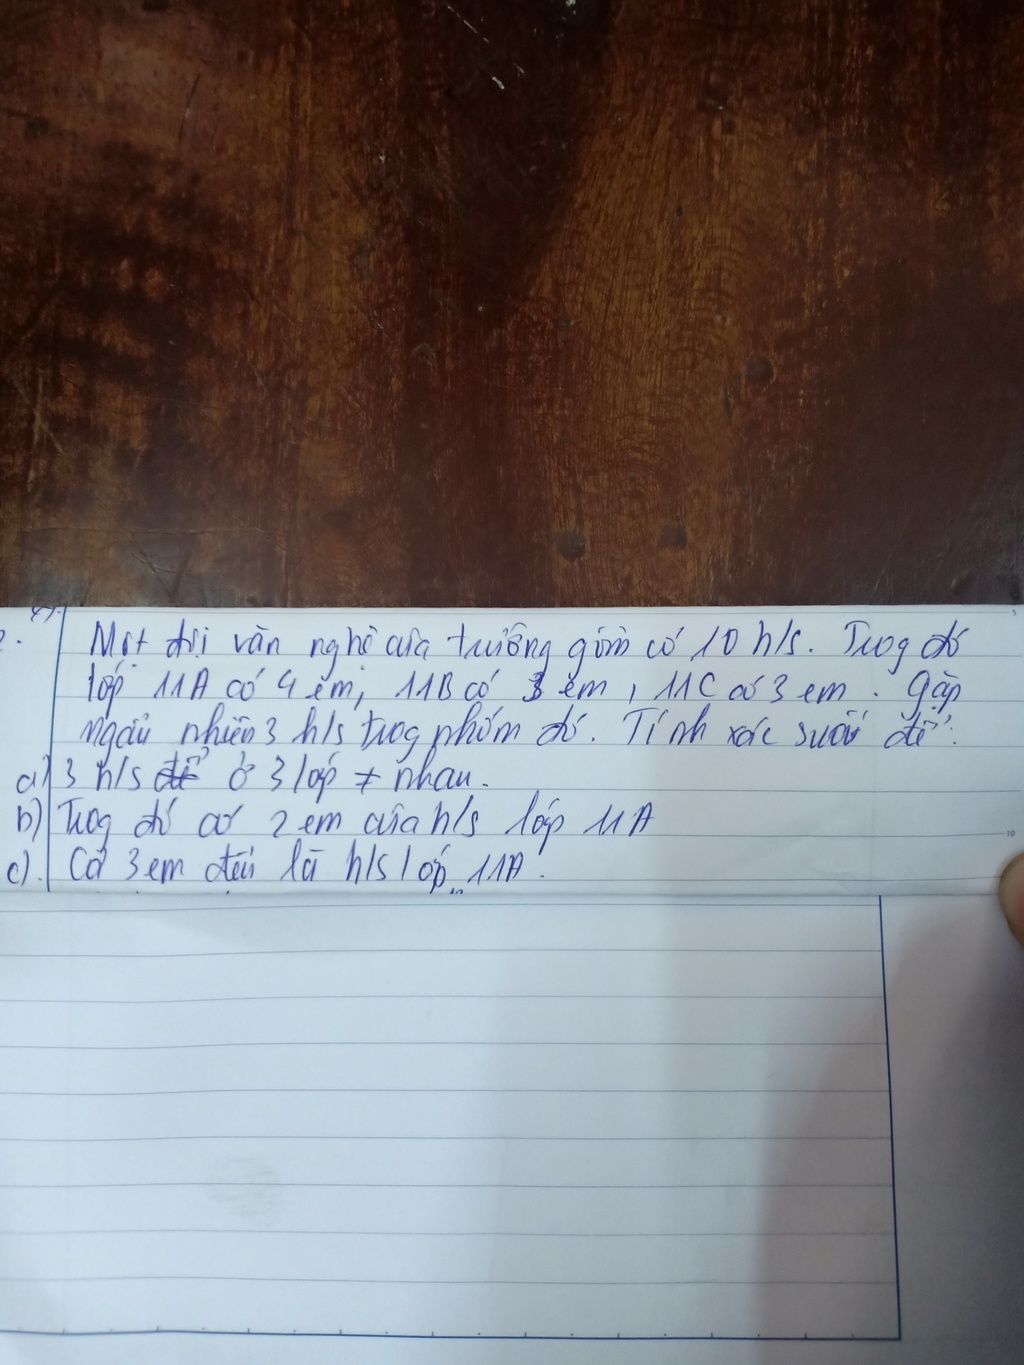 2. Một đội văn nghệ của trường gồm có 10 h/s. Trog đó
lớp 11A có 4 em, 11B có 3 em, 11C có 3 em. Gặp
ngẫu nhiên 3 h/s trog nhóm đó. Tính xác suất để:
a) 3 h/s để ở 3 lớp ≠ nhau.
b) Trog đó có 2 em của h/s lớp 11A
c). Cả 3 em đều là h/s lớp 11A.
5
10